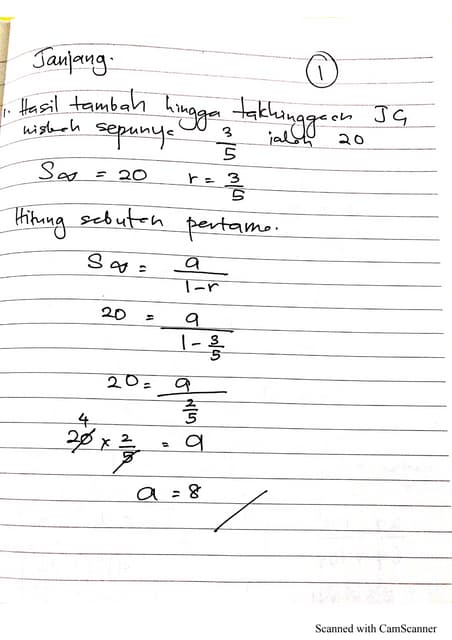 Janjang.
1
1. Hasil tambah hingga takhinggaan JG
nisbah sepunya 3/5 ialah 20
S∞ = 20 r = 3/5
Hitung sebutan pertama.
S∞ = a/1-r
20 = a/1-3/5
20 = a/2/5
4
20 x 2/5 = a
a = 8
Scanned with CamScanner